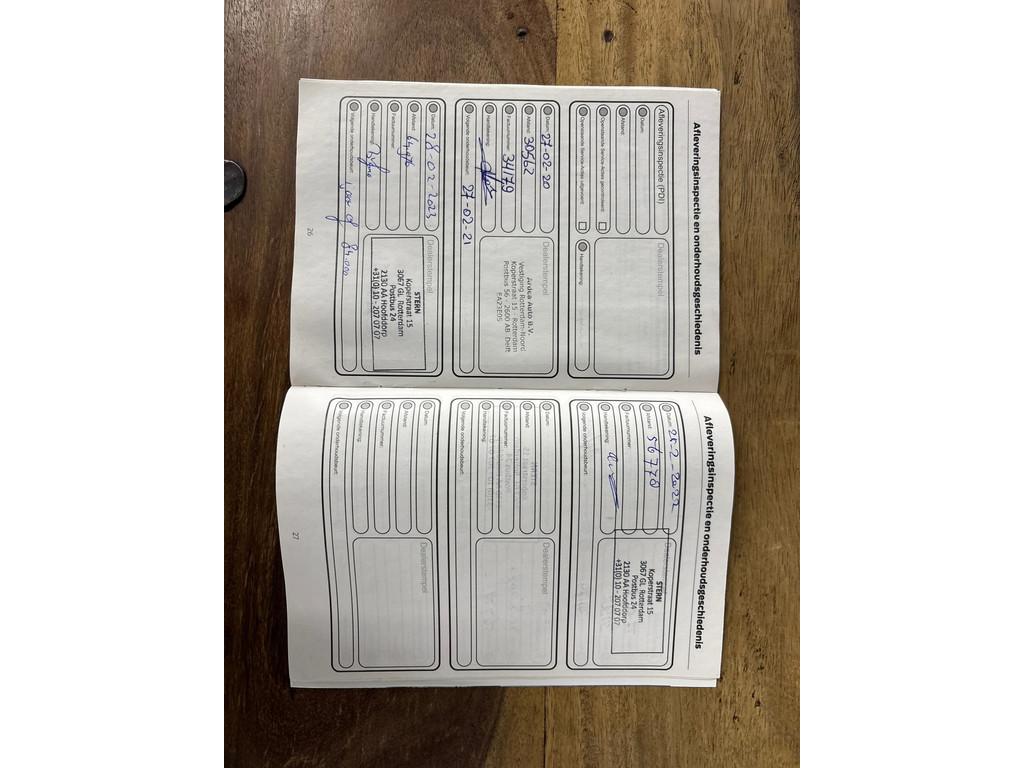 Afleveringsinspectie en onderhoudsgeschiedenis
(Afleveringsinspectie (PDI)
Datum:
Afstand:
Openstaande Service Acties gecontroleerd:
Openstaande Service Acties uitgevoerd:
Dealerstempel
Handtekening:
Datum: 27-02-20
Afstand: 30562
Factuurnummer: 34179
Handtekening:
Volgende onderhoudsbeurt: 27-02-21
Dealerstempel
Ardea Auto B.V.
Vestiging Rotterdam-Noord
Koperstraat 15 - Rotterdam
Postbus 56 - 2600 AB Delft
EA23E05
Datum: 28-02-2023
Afstand:
Factuurnummer:
Handtekening:
Volgende onderhoudsbeurt: 1 jaar of 84.000
Dealerstempel
STERN
Koperstraat 15
3067 GL Rotterdam
Postbus 24
2130 AA Hoofddorp
+31(0) 10 - 207 07 07
26
Afleveringsinspectie en onderhoudsgeschiedenis
Datum: 25-2-2022
Afstand: 56778
Factuurnummer:
Handtekening:
Volgende onderhoudsbeurt:
Dealerstempel
STERN
Koperstraat 15
3067 GL Rotterdam
Postbus 24
2130 AA Hoofddorp
+31(0) 10 - 207 07 07
Datum:
Afstand:
Factuurnummer:
Handtekening:
Volgende onderhoudsbeurt:
Dealerstempel
Datum:
Afstand:
Factuurnummer:
Handtekening:
Volgende onderhoudsbeurt:
Dealerstempel
27